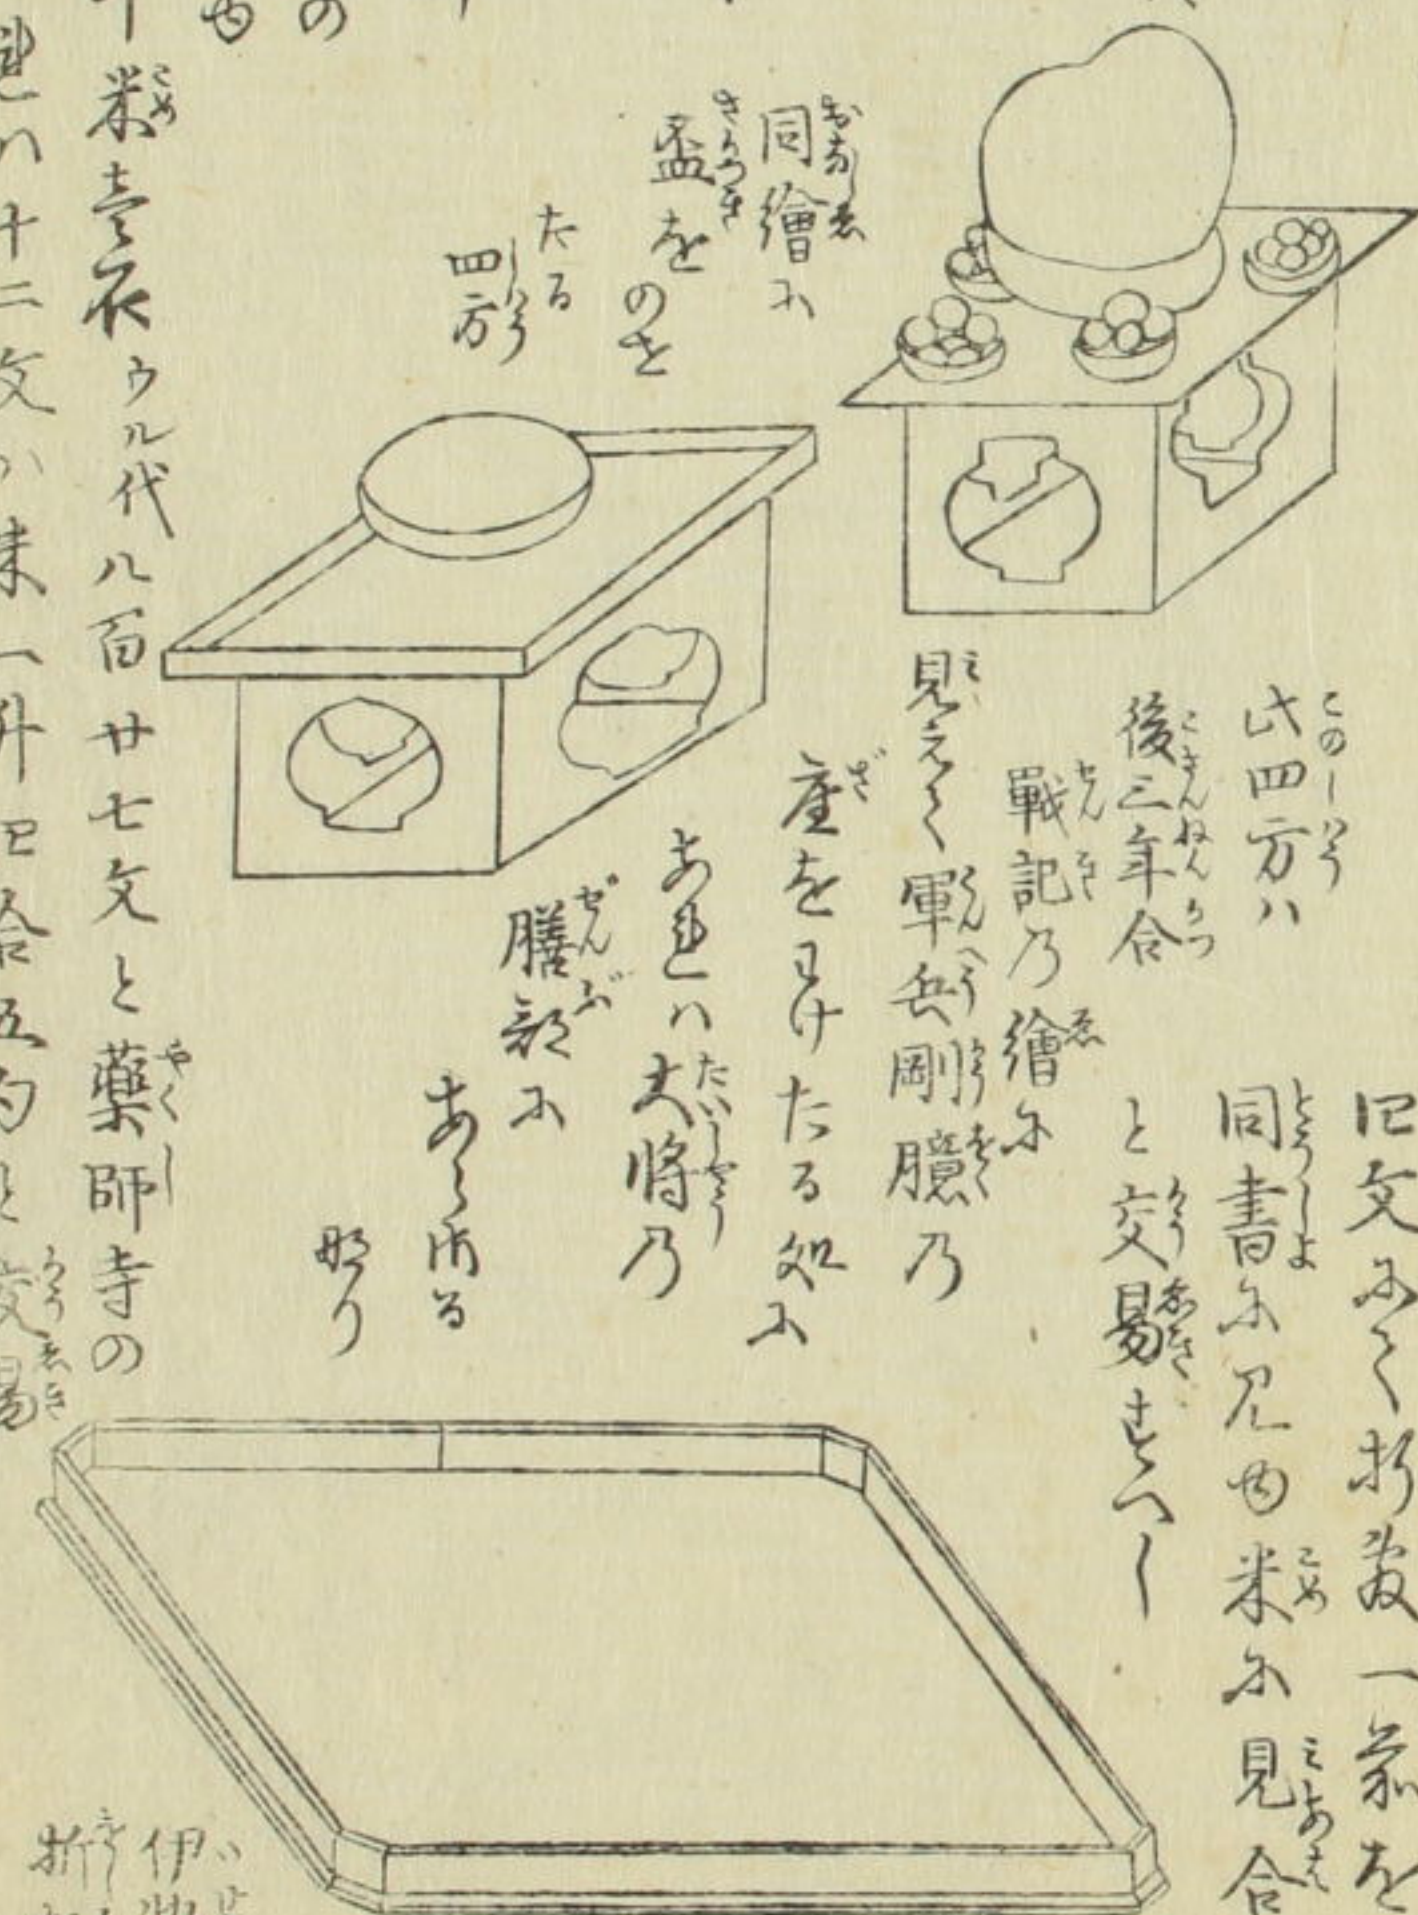 四文にて折敷一前を
同書に又内米に見合
と交易すへし
此四方ハ
後三年合
戦記乃繪に
見えて軍兵剛臆乃
座をわけたる処に
あれハ大将乃
膳部に
あら須る
那り
同繪に
盃をのせ
たる
四方
米壱石ウル代八百廿七文と薬師寺の
十二文ハ米一升四合五勺と交易
伊勢
折